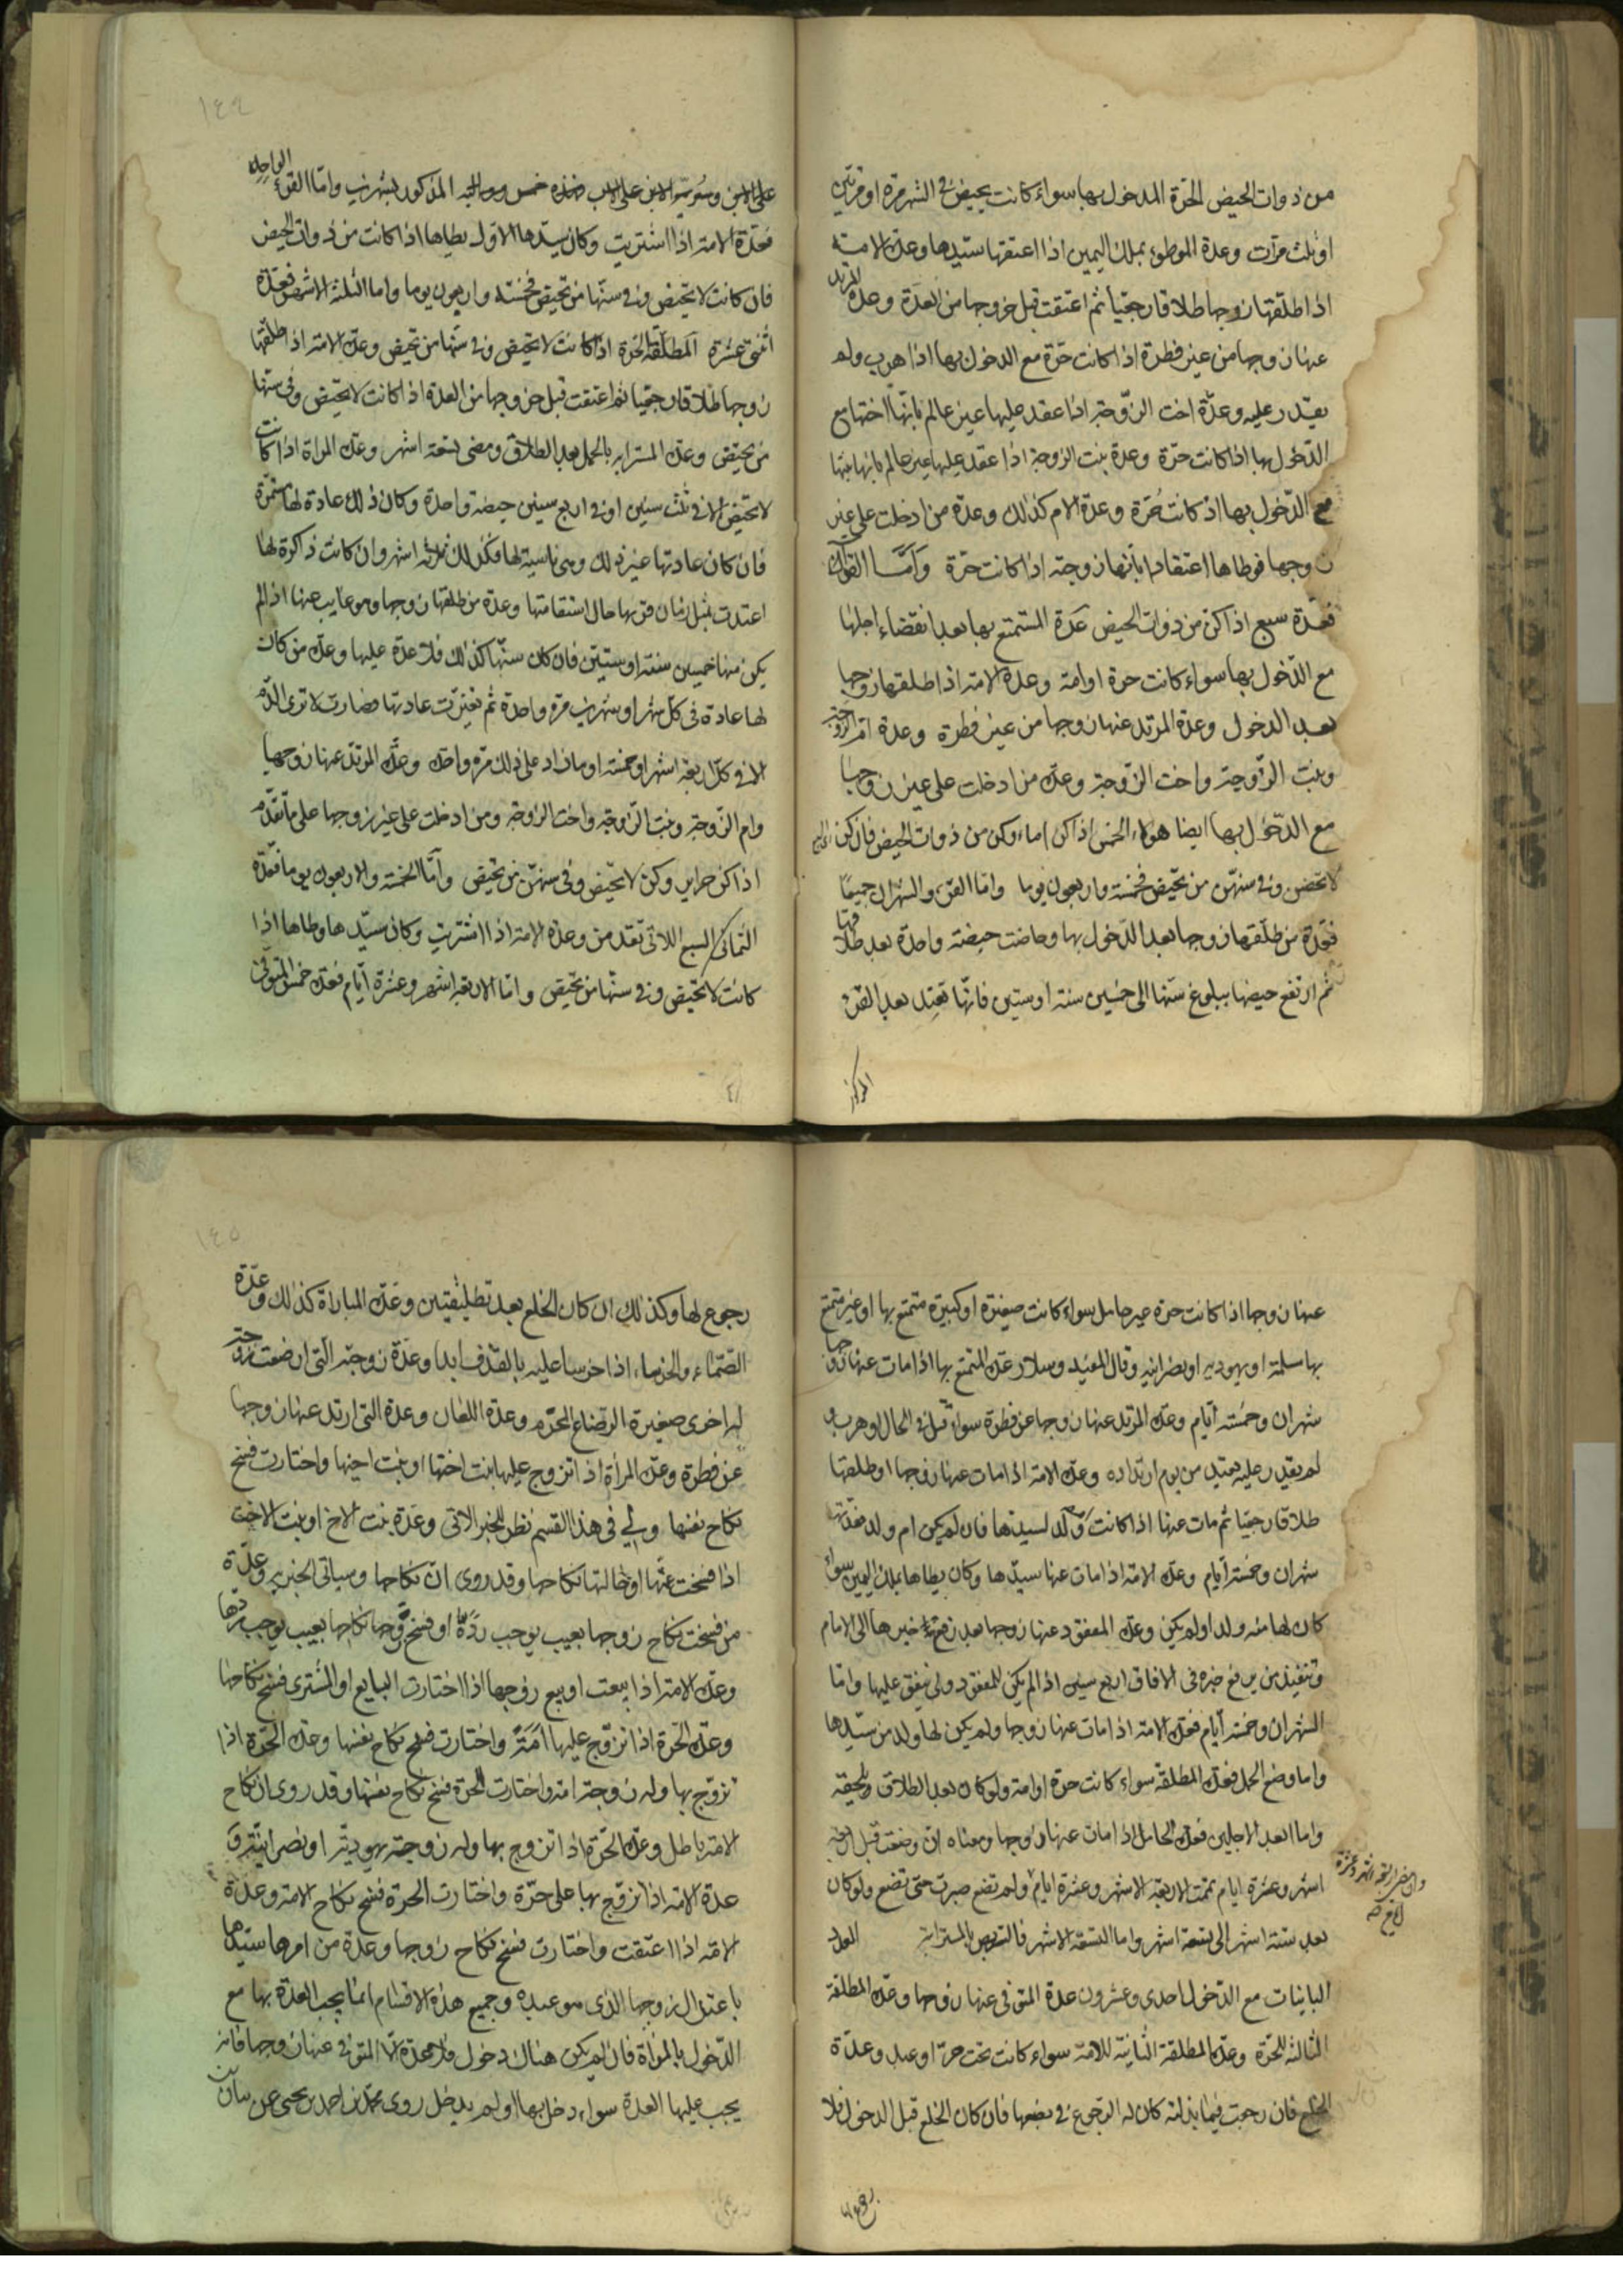 من ذوات الحيض الحرة المدخول بها سواء كانت تحيض في الشهر مرة او مرتين
او ثلث مرات وعدة الموطوءة بملك اليمين اذا اعتقها سيدها وعدة الامة
اذا طلقها زوجها طلاقا رجعيا ثم اعتقت قبل خروجها من العدة وعدة المرتد
عنها زوجها من غير فطرة اذا كانت حرة مع الدخول بها اذا هرب ولم
يقدر عليه وعدة اخت الزوجة اذا عقد عليها غير عالم بانها اختها مع
الدخول بها اذا كانت حرة وعدة بنت الزوجة اذا عقد عليها غير عالم بانها بنتها
مع الدخول بها اذ كانت حرة وعدة الام كذلك وعدة من ادخلت على غير
زوجها فوطاها اعتقادا بانها زوجته اذا كانت حرة واما القرآن
فعدة سبع اذا كن من ذوات الحيض عدة المستمتع بها بعد انقضاء اجلها
مع الدخول بها سواء كانت حرة او امة وعدة الامة اذا طلقها زوجها
بعد الدخول وعدة المرتد عنها زوجها من غير فطرة وعدة ام الزوجة
وبنت الزوجة واخت الزوجة وعدة من ادخلت على غير زوجها
مع الدخول بها ايضا هؤلاء الخمس اذا كن اماء وكن من ذوات الحيض فان كن
لا تحضن وفي سنهن من تحيض فخمسة واربعون يوما واما القرء والشهران جميعا
فعدة من طلقها زوجها بعد الدخول بها وحاضت حيضة واحدة بعد طلاقها
ثم ارتفع حيضها ببلوغ سنها الى خمسين سنة او ستين فانها تعتد بعد القرء
المذكور
١٤٤
على الابن وسرية الابن على الاب المذكور بشهرين واما القرء الواحد
فعدة الامة اذا اشتريت وكان سيدها الاول يطاها اذا كانت من ذوات الحيض
فان كانت لا تحيض وفي سنها من تحيض فخمسة واربعون يوما واما الثلثة الاشهر فعدة
اثنتي عشرة المطلقة الحرة اذا كانت لا تحيض وفي سنها من تحيض وعدة الامة اذا طلقها
زوجها طلاقا رجعيا ثم اعتقت قبل خروجها من العدة اذا كانت لا تحيض وفي سنها
من تحيض وعدة المسترابة بالحمل بعد الطلاق ومضى تسعة اشهر وعدة المراة اذا كانت
لا تحيض الا في ثلث سنين او في اربع سنين حيضة واحدة وكان ذلك عادة لها مستمرة
فان كان عادتها غير ذلك وهي ناسية لها فكذلك ثلاثة اشهر وان كانت ذاكرة لها
اعتدت بمثل زمان قرءها حال استقامتها وعدة من طلقها زوجها وهو غايب عنها اذا لم
يكن سنها خمسين سنة او ستين فان كان سنها كذلك فلا عدة عليها وعدة من كان
لها عادة في كل شهر او شهرين مرة واحدة ثم تغيرت عادتها فصارت لا ترى الدم
الا في كل اربعة اشهر او خمسة او ما زاد على ذلك مرة واحدة وعدة المرتد عنها زوجها
وام الزوجة وبنت الزوجة واخت الزوجة ومن ادخلت على غير زوجها على ما تقدم
اذا كن حراير وكن لا تحيض وفي سنهن من تحيض واما الخمسة والاربعون يوما فعدة
الثماني السبع اللاتي تقد من وعدة الامة اذا اشتريت وكان سيدها وطاها اذا
كانت لا تحيض وفي سنها من تحيض واما الاربعة اشهر وعشرة ايام فعدة خمس المتوفى
عنها زوجها اذا كانت حرة غير حامل سواء كانت صغيرة او كبيرة متمتع بها او غير متمتع
بها مسلمة او يهودية او نصرانية وقال المفيد وسلار عدة المتمتع بها اذا مات عنها زوجها
شهران وخمسة ايام وعدة المرتد عنها زوجها عن فطرة سواء قتل في الحال او هرب و
لم يقدر عليه تعتد من يوم ارتداده وعدة الامة اذا مات عنها زوجها او طلقها
طلاقا رجعيا ثم مات عنها اذا كانت ام ولد لسيدها فان لم يكن ام ولد فعدتها
شهران وخمسة ايام وعدة الامة اذا مات عنها سيدها وكان يطاها بملك اليمين سواء
كان لها منه ولد او لم يكن وعدة المفقود عنها زوجها بعد رفع خبرها الى الامام
وتنفيذ من يرفع خبره في الافاق اربع سنين اذا لم يكن للمفقود ولي ينفق عليها واما
الشهران وخمسة ايام فعدة الامة اذا مات عنها زوجها ولم يكن لها ولد من سيدها
واما وضع الحمل فعدة المطلقة سواء كانت حرة او امة ولو كان بعد الطلاق بلحظة
واما ابعد الاجلين فعدة الحامل اذا مات عنها زوجها ومعناه ان وضعت قبل اربعة
اشهر وعشرة ايام تممت الاربعة الاشهر وعشرة ايام ولم تضع صبرت حتى تضع ولو كان
بعد ستة اشهر الى تسعة اشهر واما التسعة الاشهر فالتربص بالمسترابة العدد
البائنات مع الدخول احدى وعشرون عدة المتوفى عنها زوجها وعدة المطلقة
الثالثة للحرة وعدة المطلقة الثانية للامة سواء كانت تحت حر او عبد وعدة
الخلع فان رجعت فيما بذلته كان له الرجوع في بضعها فان كان الخلع قبل الدخول فلا
رجوع لها
١٤٥
رجوع لها وكذلك ان كان الخلع بعد تطليقتين وعدة المباراة كذلك وعدة
الصماء والخرساء اذا خرسا عليه بالقذف ابدا وعدة زوجته التي ارضعت زوجته
له اخرى صغيرة الرضاع المحرم وعدة اللعان وعدة التي ارتد عنها زوجها
عن فطرة وعدة المراة اذا تزوج عليها بنت اختها او بنت اخيها واختارت فسخ
نكاح نفسها ولي في هذا القسم نظر للخبر الاتي وعدة بنت الاخ او بنت الاخت
اذا فسخت عمتها او خالتها نكاحها وقد روي ان نكاحها وسياتي الخبر به وعدة
من فسخت نكاح زوجها بعيب يوجب رده او فسخ زوجها نكاحها بعيب يوجب ردها
وعدة الامة اذا بيعت او بيع زوجها اذا اختارت البايع او المشتري فسخ نكاحها
وعدة الحرة اذا تزوج عليها امة واختارت فسخ نكاح نفسها وعدة الحرة اذا
تزوج بها وله زوجة امة واختارت الحرة فسخ نكاح نفسها وقد روي ان نكاح
الامة باطل وعدة الحرة اذا تزوج بها وله زوجة يهودية او نصرانية و
عدة الامة اذا تزوج بها على حرة واختارت الحرة فسخ نكاح الامة وعدة
الامة اذا اعتقت واختارت فسخ نكاح زوجها وعدة من امرها سيدها
باعتزال زوجها الذي هو عبده وجميع هذه الاقسام انما يجب العدة بها مع
الدخول بالمراة فان لم يكن هناك دخول فلا عدة الا المتوفى عنها زوجها فانه
يجب عليها العدة سواء دخل بها او لم يدخل روى محمد بن احمد بن يحيى عن بنان بن